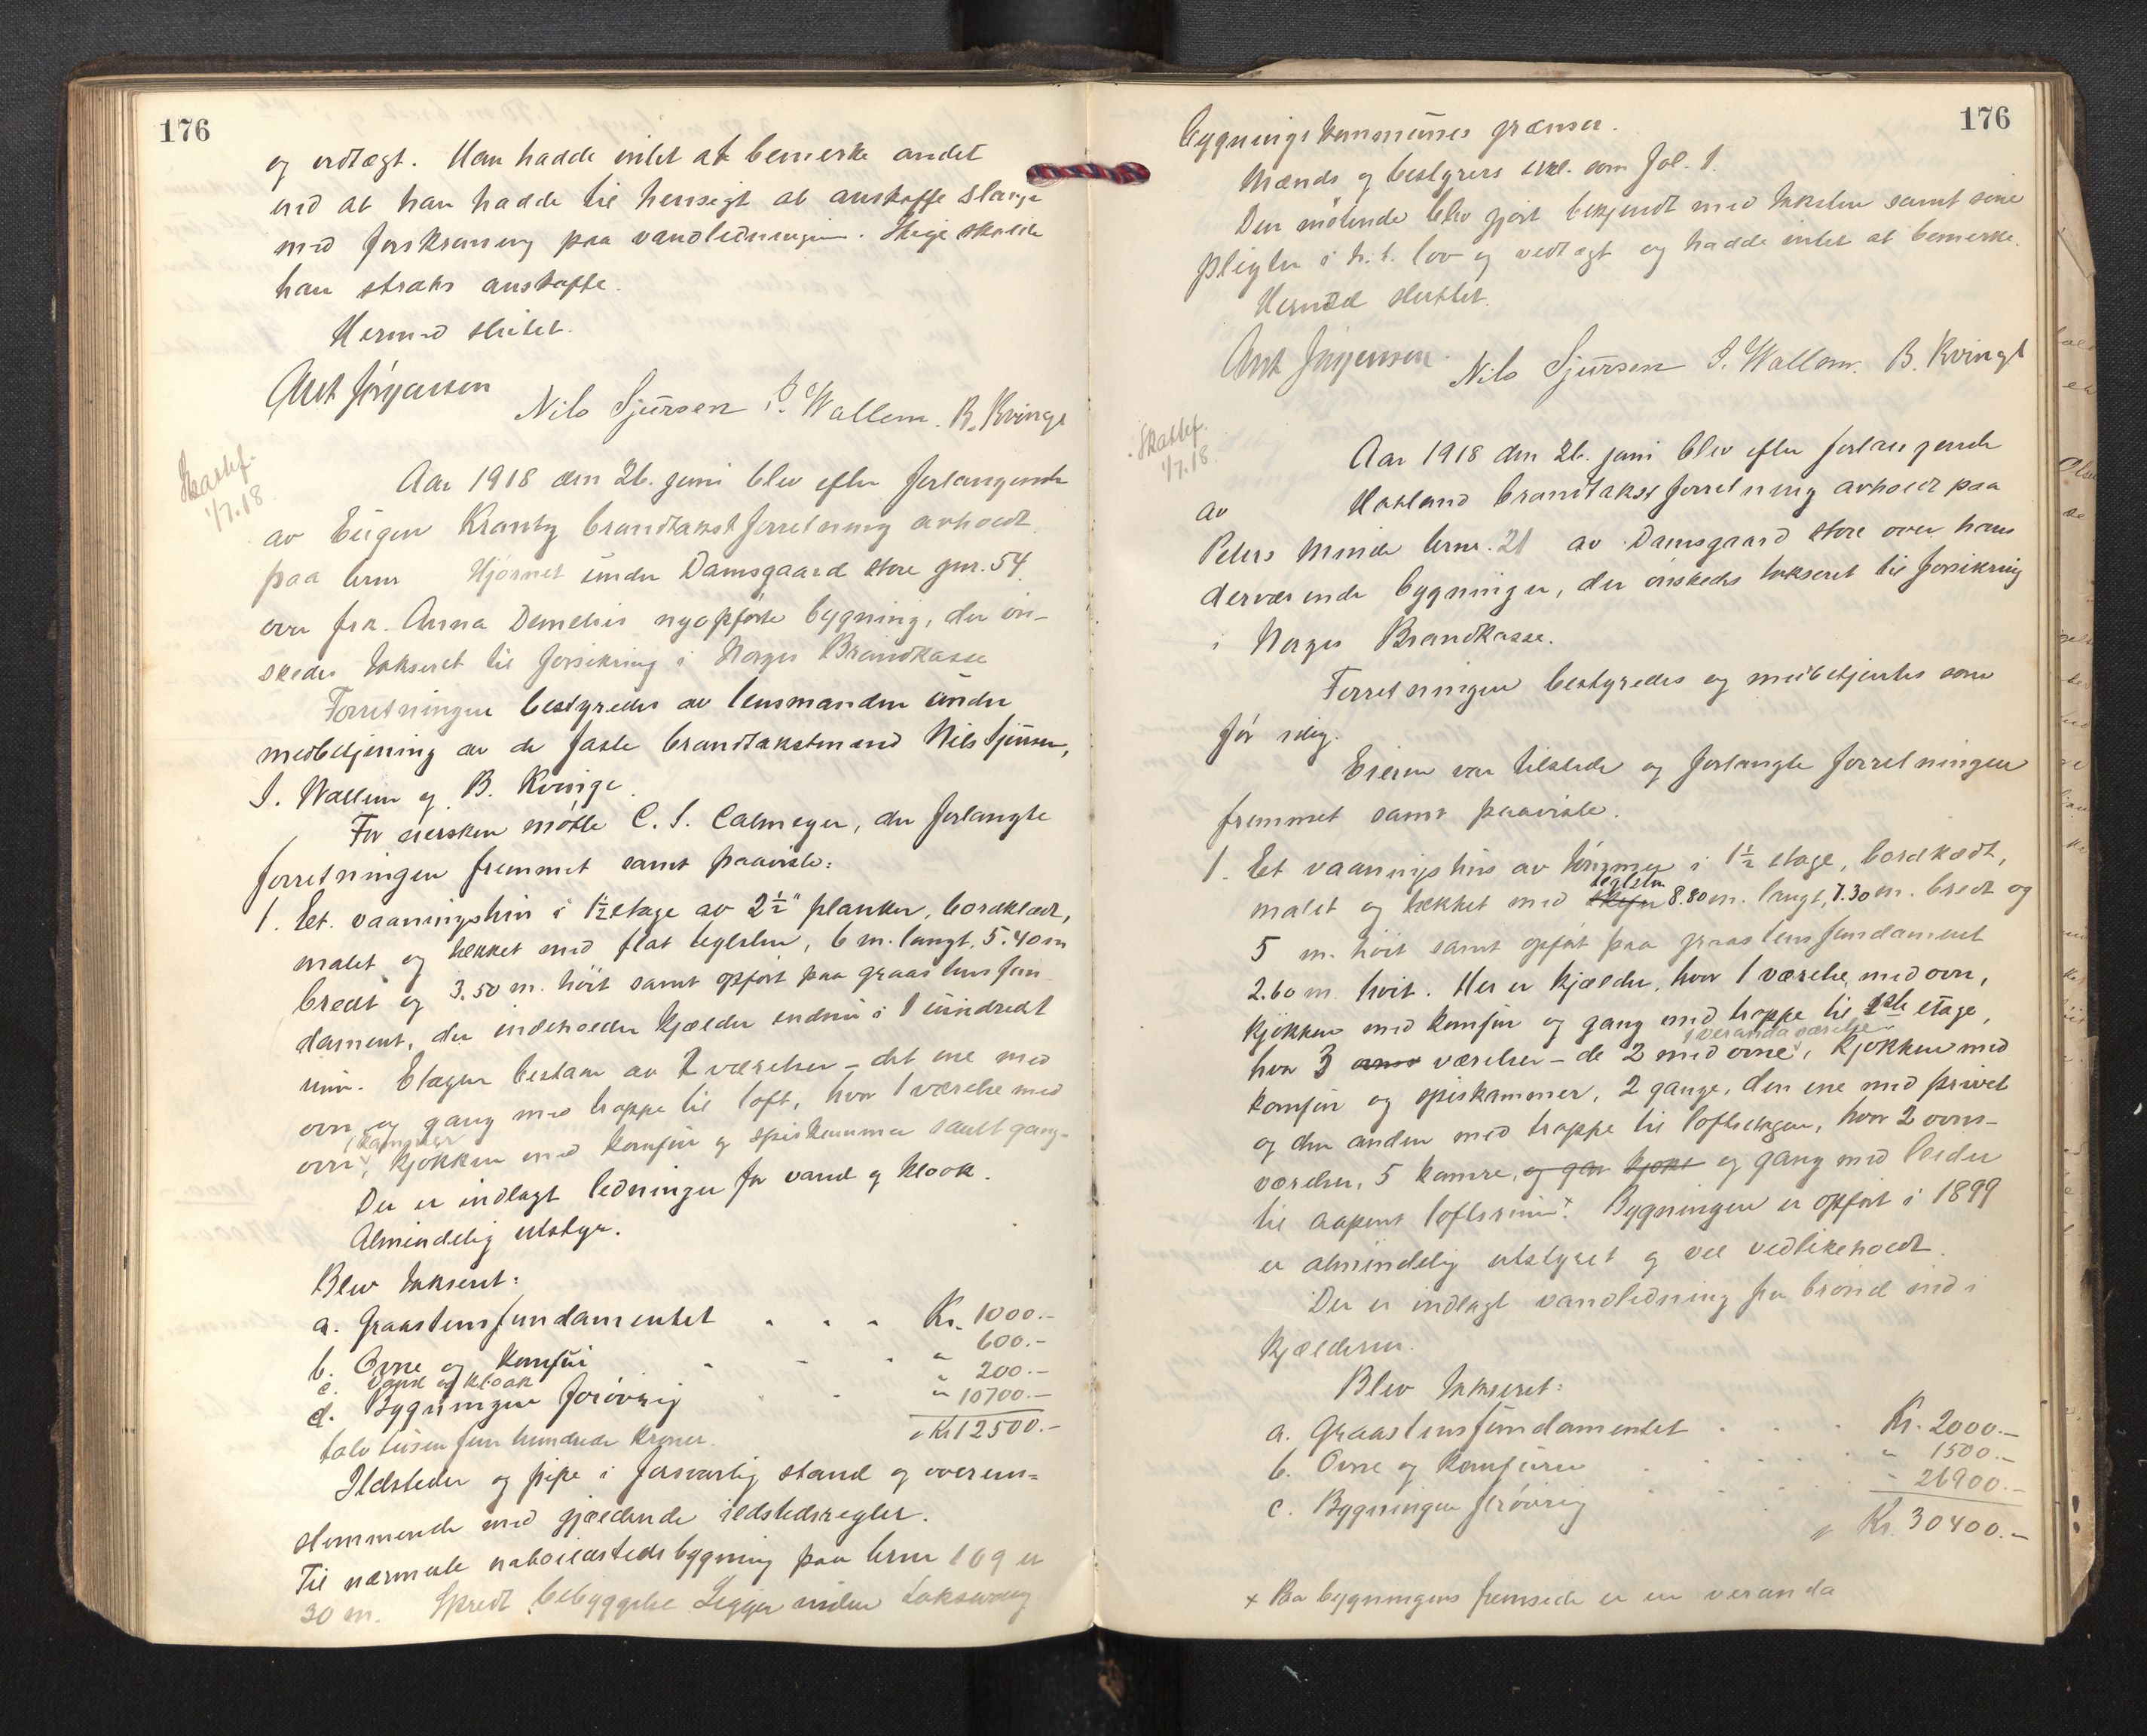 176
og vedtægt. Han hadde intet at bemerke andet
end at han hadde til hensigt at anskaffe slange
med forskruning paa vandledningen. Stige skulde
han straks anskaffe.
Hermed sluttet.
Anst Jørgensen Nils Sjursen I. Wallem. B. Kvinge
Skattef. 1/7.18
Aar 1918 den 26. juni blev efter forlangende
av Eugen Krantz brandtakstforretning avholdt
paa brnr Hjørnet under Damsgaard store gnr. 54
over frk. Anna Demelsis nyopførte bygning, der øn-
skedes takseret til forsikring i Norges Brandkasse
Forretningen bestyredes av lensmanden under
medbetjening av de faste brandtakstmænd Nils Sjursen,
I. Wallem og B. Kvinge.
For eiersken møtte C. S. Calmeyer, der forlangte
forretningen fremmet samt paaviste:
1. Et vaaningshus i 1½ etage av 2½" planker, bordklædt,
malet og tækket med flat teglsten, 6 m. langt, 5.40 m
bredt og 3.50 m. høit samt opført paa graastensfun
dament, der indeholder kjælder endnu i 1 uindredt
rum. Etagen bestaar av 2 værelser – det ene med
ovn og gang med trappe til loft, hvor 1 værelse med
ovn, 1 kammer, kjøkken med komfur og spiskammer samt gang.
Der er indlagt ledninger for vand og kloak.
Almindelig utstyr.
Blev takseret:
a. Graastensfundamentet . . . Kr. 1000.-
b. Ovne og komfur - - - " 600.-
c. Vand og kloak " 200.-
d. Bygningen forøvrig . . " 10700.-
tolv tusen fem hundrede kroner. Kr 12500.-
Ildsteder og pipe i forsvarlig stand og overens=
stemmende med gjældende ildstedsregler.
Til nærmeste naboildstedsbygning paa brnr 109 er
30 m. Spredt bebyggelse Ligger inden
176
bygningskommunes grænser.
Mænds og bestyrers erkl. som fol. 1.
Den møtende blev gjort bekjendt med taksten samt sine
pligter i h. t. lov og vedtægt og hadde intet at bemerke.
Hermed sluttet.
Anst Jørgensen Nils Sjursen I. Wallem. B. Kvinge
Skattef. 1/7.18.
Aar 1918 den 26. juni blev efter forlangende
av Hokland brandtakstforretning avholdt paa
Peters Minde brnr. 21 av Damsgaard store over hans
derværende bygninger, der ønskedes takseret til forsikring
i Norges Brandkasse.
Forretningen bestyredes og medbetjentes som
før sidig.
Eieren var tilstede og forlangte forretningen
fremmet samt paaviste.
1. Et vaaningshus av tømmer i 1½ etage, bordklædt,
malet og tækket med teglsten 8.80 m. langt, 7.30 m. bredt og
5 m. høit samt opført paa graastensfundament
2.60 m. høit. Her er kjælder, hvor 1 værelse med ovn,
kjøkken med komfur og gang med trappe til 1ste etage,
hvor 3 værelser – de 2 med ovne, 1 verandaværelse, kjøkken med
komfur og spiskammer, 2 gange, den ene med privet
og den anden med trappe til loftsetagen, hvor 2 ovns-
værelser, 5 kamre, og gang med leider
til aapent loftsrum x. Bygningen er opført i 1899
er almindelig utstyret og vel vedlikeholdt.
Der er indlagt vandledning fra brønd ind i
kjælderen.
Blev takseret:
a. Graastensfundamentet . . . Kr. 2000.-
b. Ovne og komfurer . . . . " 1500.-
c. Bygningen forøvrig . . . " 26900.-
Kr. 30400.-
x Paa bygningens fremside er en veranda